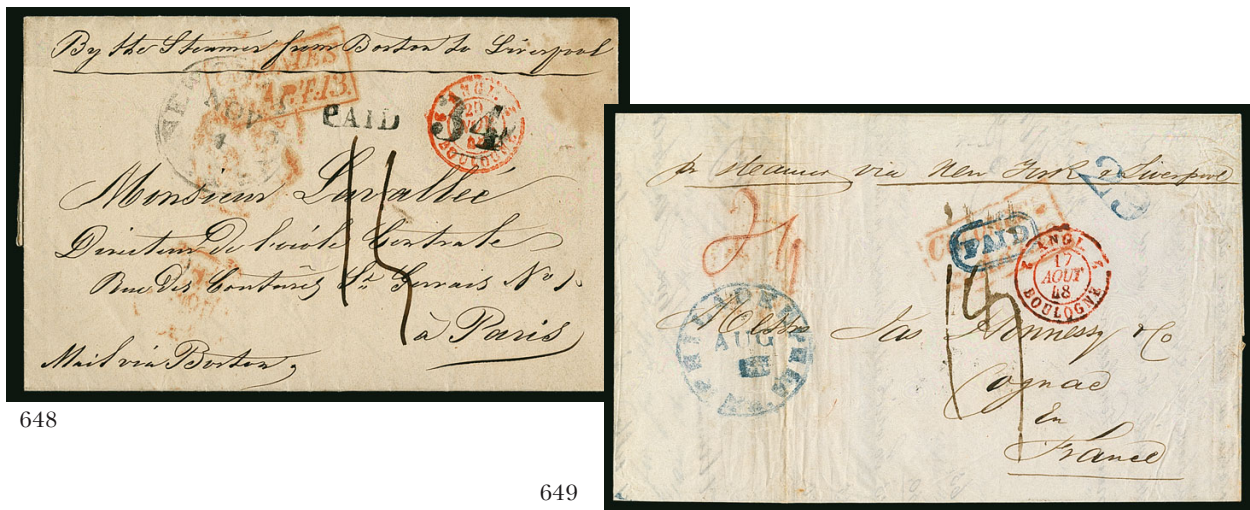 By the Steamer from Boston to Liverpool
COLONIES
ART.13.
NEW
NOV
PAID
34
ANGL.
BOULOGNE
15
Monsieur Lavallée
Directeur De l'école Centrale
Rue des Coutures St Gervais No 1.
à Paris
Mail via Boston,
648
pr steamer via New York & Liverpool
29
PAID
ANGL.
17
AOUT
48
BOULOGNE
PHILADELPHIA
AUG
Pa.
15
Messrs
Jas Hennessy & Co
Cognac
En
France
649